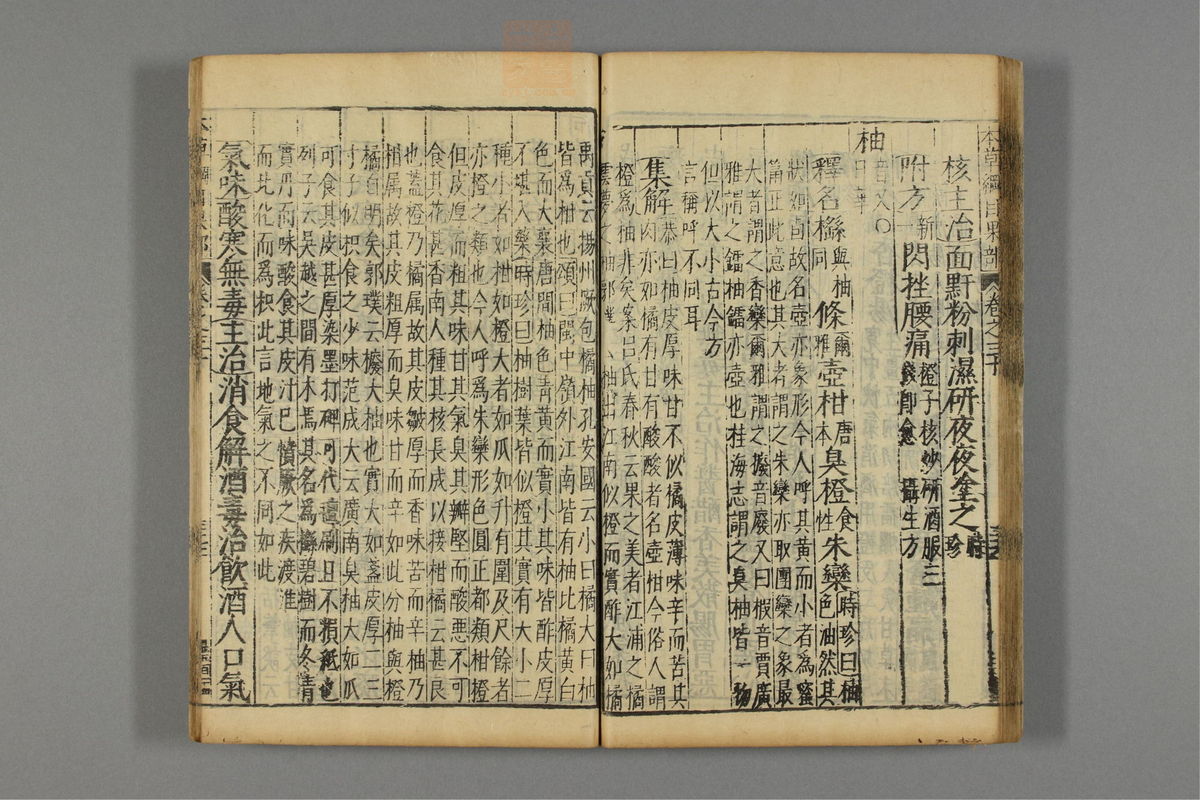 本草綱目果部 卷之三十
核主治面䵟粉刺濕研夜夜塗之 時珍
附方 新一 閃挫腰痛 橙子核炒研酒服三錢即愈 攝生方
柚 音又○日華
釋名櫾 與柚同 條 爾雅 壺柑 唐本 臭橙 食性 朱欒 時珍曰柚色油然其
狀如卣故名壺亦象形今人呼其黃而小者為蜜
筩正此意也其大者謂之朱欒亦取團欒之象最
大者謂之香欒爾雅謂之櫠音廢又曰椵音賈廣
雅謂之鐳柚鐳亦壺也桂海志謂之臭柚皆一物
但以大小古今方
言稱呼不同耳
集解 恭曰柚皮厚味甘不似橘皮薄味辛而苦其
肉亦如橘有甘有酸酸者名壺柑今俗人謂
橙為柚非矣案呂氏春秋云果之美者江浦之橘
雲夢之柚郭璞 柚出江南似橙而實酢大如橘
禹貢云揚州厥包橘柚孔安國云小曰橘大曰柚
皆為柑也頌曰閩中嶺外江南皆有柚比橘黃白
色而大襄唐間柚色青黃而實小其味皆酢皮厚
不堪入藥時珍曰柚樹葉皆似橙其實有大小二
種小者如柑如橙大者如瓜如升有圍及尺餘者
亦橙之類也今人呼為朱欒形色圓正都類柑橙
但皮厚而粗其味甘其氣臭其瓣堅而酸惡不可
食其花甚香南人種其核長成以接柑橘云甚良
也蓋橙乃橘屬故其皮皺厚而香味苦而辛柚乃
柑屬故其皮粗厚而臭味甘而辛如此分柚與橙
橘自明矣郭璞云櫠大柚也實大如盞皮厚二三
寸子似枳食之少味范成大云廣南臭柚大如瓜
可食其皮甚厚染墨打碑可代氊刷且不損紙也
列子云吳越之間有木焉其名為櫾碧樹而冬青
實丹而味酸食其皮汁已憤厥之疾渡淮
而北化而為枳此言地氣之不同如此
氣味酸寒無毒主治消食解酒毒治飲酒人口氣